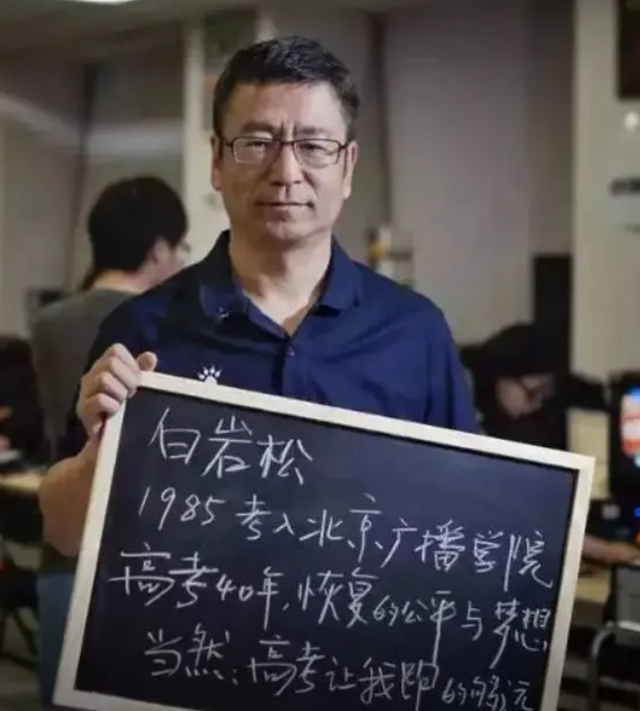 白岩松
1985考入北京广播学院
高考40年,恢复的公平与梦想
当然:高考让我